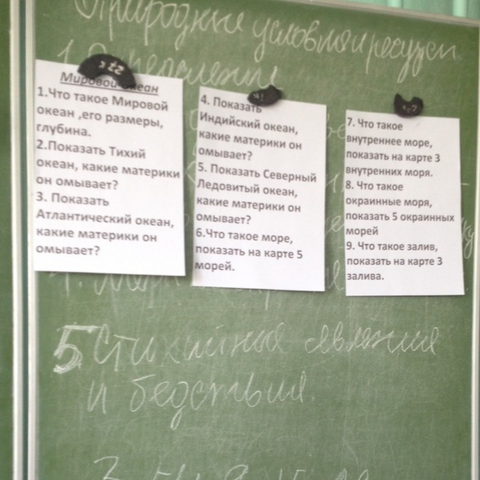 Природные условия и ресурсы
Мировой океан
1.Что такое Мировой
океан ,его размеры,
глубина.
2.Показать Тихий
океан, какие материки
он омывает?
3. Показать
Атлантический океан,
какие материки он
омывает?
4. Показать
Индийский океан,
какие материки он
омывает?
5. Показать Северный
Ледовитый океан,
какие материки он
омывает?
6.Что такое море,
показать на карте 5
морей.
7. Что такое
внутреннее море,
показать на карте 3
внутренних моря.
8. Что такое
окраинные моря,
показать 5 окраинных
морей
9. Что такое залив,
показать на карте 3
залива.
5 Стихийные явления
и бедствия.